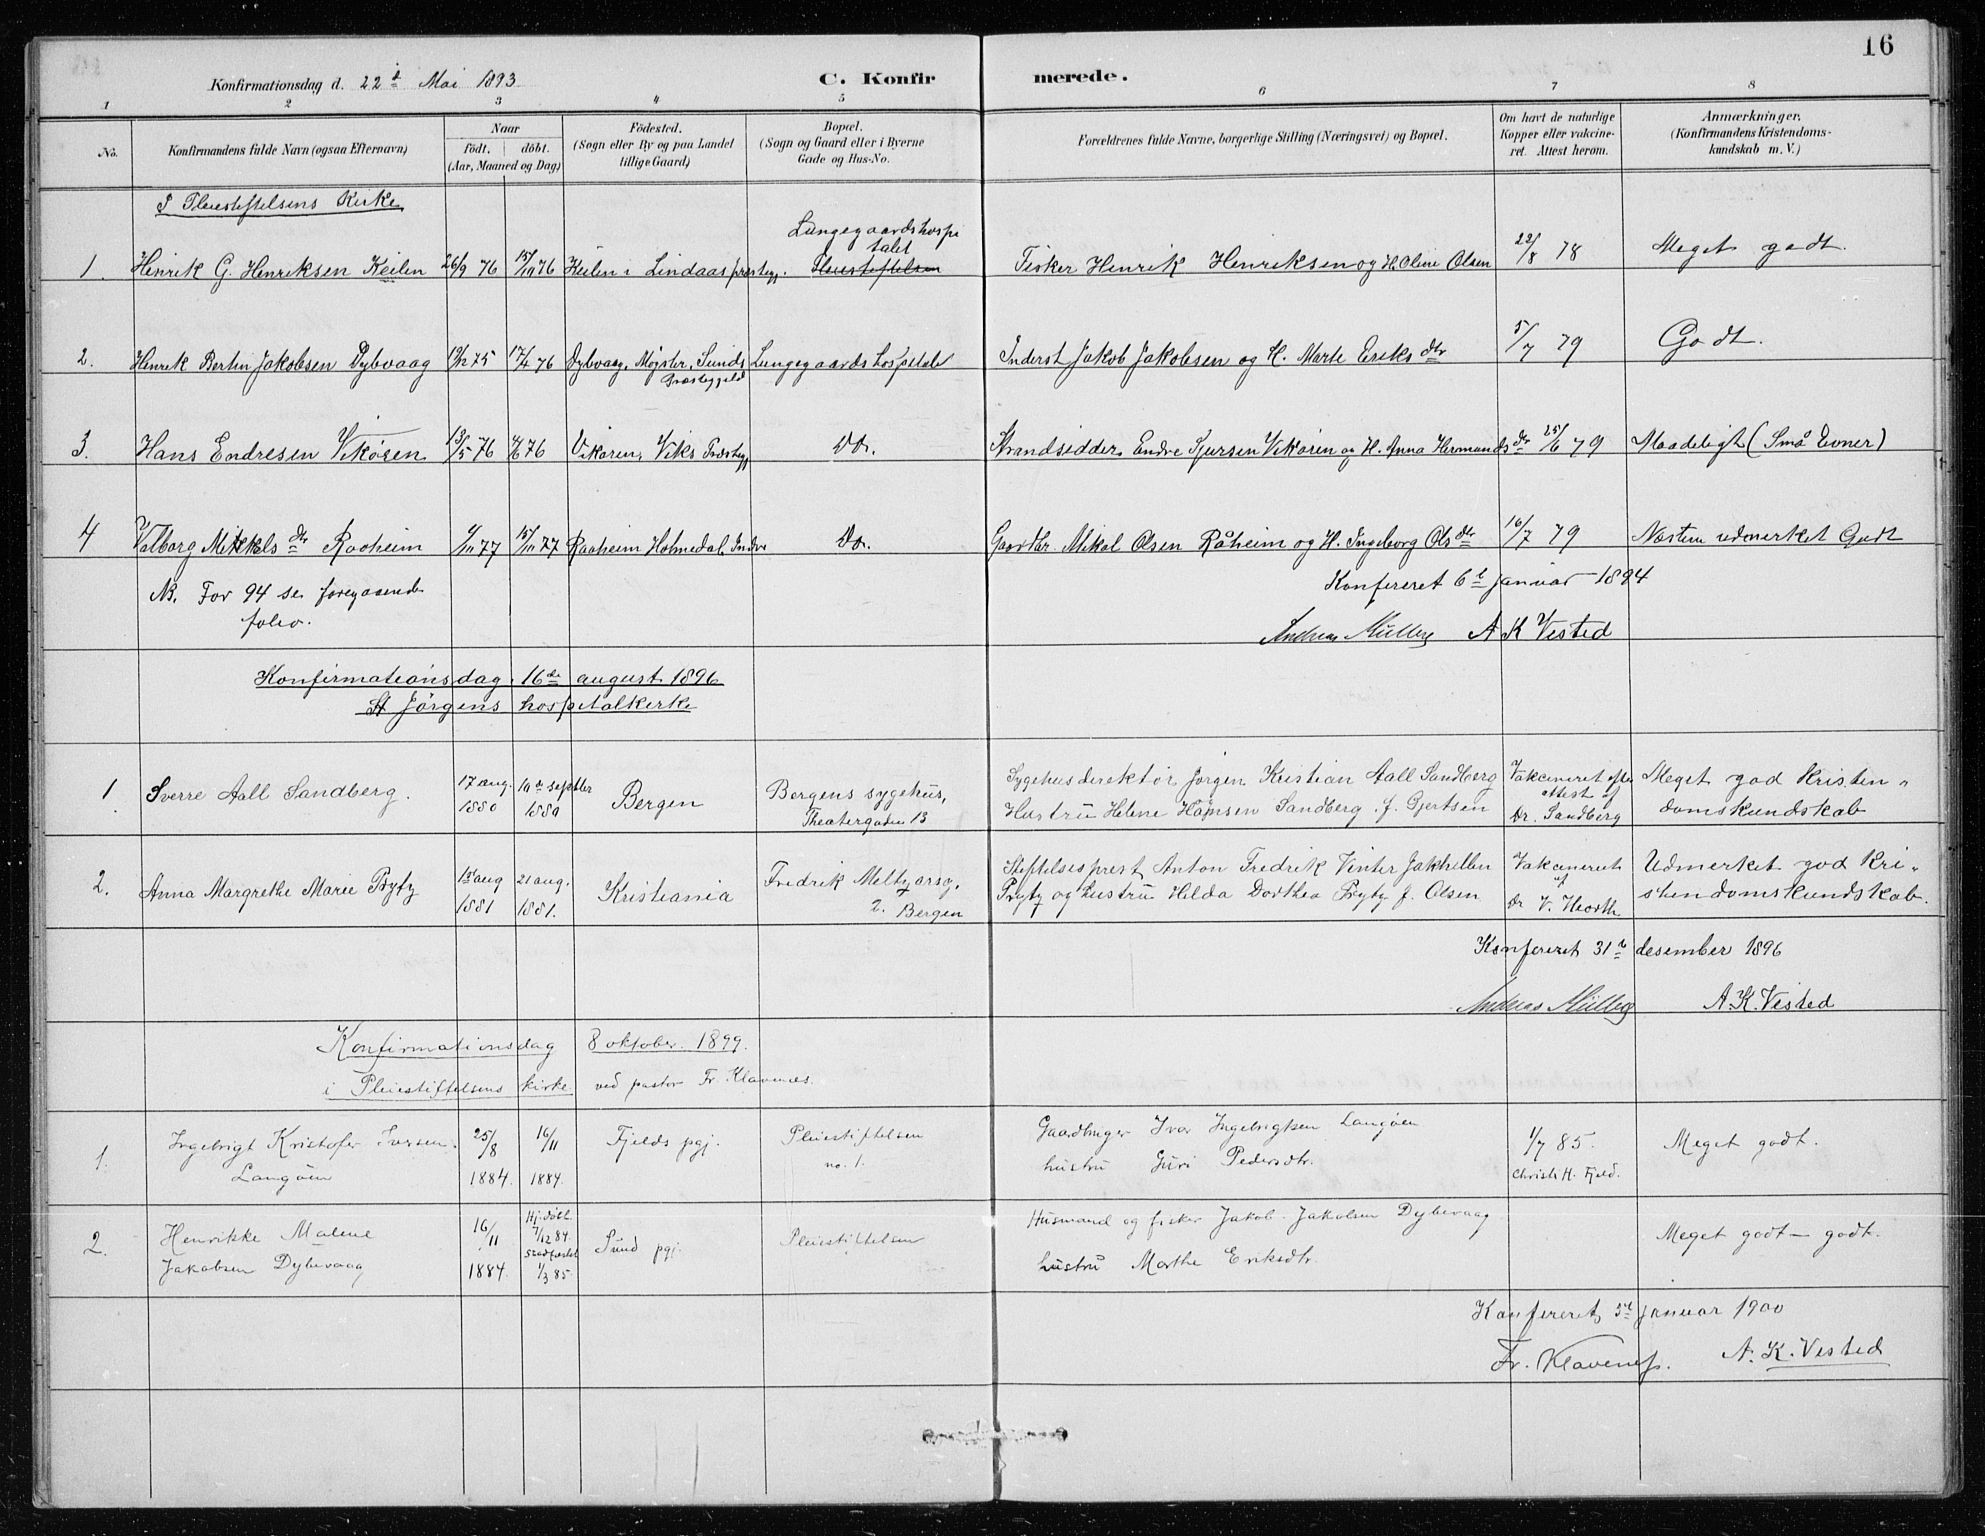 16
Konfirmationsdag d. 22d Mai 1893. C. Konfirmerede.
1 2 3 4 5 6 7 8
No. Konfirmandens fulde Navn (ogsaa Efternavn)
Naar födt. döbt. (Aar, Maaned og Dag)
Födested. (Sogn eller By og paa Landet tillige Gaard)
Bopæl. (Sogn og Gaard eller i Byerne Gade og Hus-No.
Forældrenes fulde Navne, borgerlige Stilling (Næringsvei) og Bopæl.
Om havt de naturlige Kopper eller vakcineret. Attest herom.
Anmærkninger. (Konfirmandens Kristendomskundskab m. V.)
I Pleiestiftelsens Kirke
1. Henrik G. Henriksen Keilen 26/9 76 15/10 76 Keilen i Lindaas præstegj. Lungegaardshospitalet Pleiestiftelsen Fisker Henrik Henriksen og H. Oline Olsen 22/8 78 Meget godt.
2. Henrik Bertin Jakobsen Dybvaag 75 17/4 76 Dybvaag, Møgster, Sunds Præstegjeld Lungegaardshospitalet Inderst Jakob Jakobsen og H. Marte Eriksdtr 5/7 79 Godt.
3. Hans Endresen Vikøren 13/5 76 76 Vikøren, Viks Præstegj. Do. Strandsidder Endre Sjursen Vikøren og H. Anna Hermundsdr 25/6 79 Maadeligt (Små Evner)
4 Valborg Mikkelsdtr Raaheim 77 15/11 77 Raaheim Holmedal, Indre Do. Gaardbr. Mikal Olsen Råheim og H. Ingeborg Olsdtr 16/7 79 Næsten udmerket Godt
NB. For 94 se foregaaende
folio.
Konfereret 6t januar 1894
Andreas Müller A K Vested
Konfirmationsdag. 16de august 1896
St Jørgens hospitalkirke
1 Sverre Aall Sandberg. 17 aug. 1880 19de septbr 1880 Bergen Bergens sygehus, Theatergaden 13 Sygehusdirektør Jørgen Kristian Aall Sandberg Hustru Helene Hansen Sandberg f. Gjertsen Vakcineret efter attest af Dr. Sandberg Meget god Kristendomskundskab
2. Anna Margrethe Marie Prytz aug 1881 21 aug. 1881. Kristiania Fredrik Meltzersg. 2. Bergen Stiftelsesprest Anton Fredrik Vinter Jakhelln Prytz og hustru Hilda Dorthea Prytz f. Olsen Vakcineret af Dr V. Hiorth Udmerket god Kristendomskundskab.
Konfereret 31t desember 1896
Andreas Müller A. K. Vested
Konfirmationsdag 8 oktober. 1899.
i Pleiestiftelsens kirke ved pastor Fr. Klavenes.
1. Ingebrigt Kristofer Iversen Langøen 25/8 1884. 16/11 1884. Fjelds pgj. Pleiestiftelsen no. 1. Gaardbruger Ivar Ingebrigtsen Langøen hustru Guri Pedersdtr. 1/7 85. Christi H. Fjeld. Meget godt.
2. Henrikke Malene Jakobsen Dybevaag 16/11 1884. Hj. døbt 7/12 84. stadfæstet 1/3 85. Sund pgj. Pleiestiftelsen Husmand og fisker Jakob Jakobsen Dybevaag hustru Marthe Eriksdtr. Meget godt - godt.
Konfereret januar 1900
Fr. Klaveness. A. K. Vested